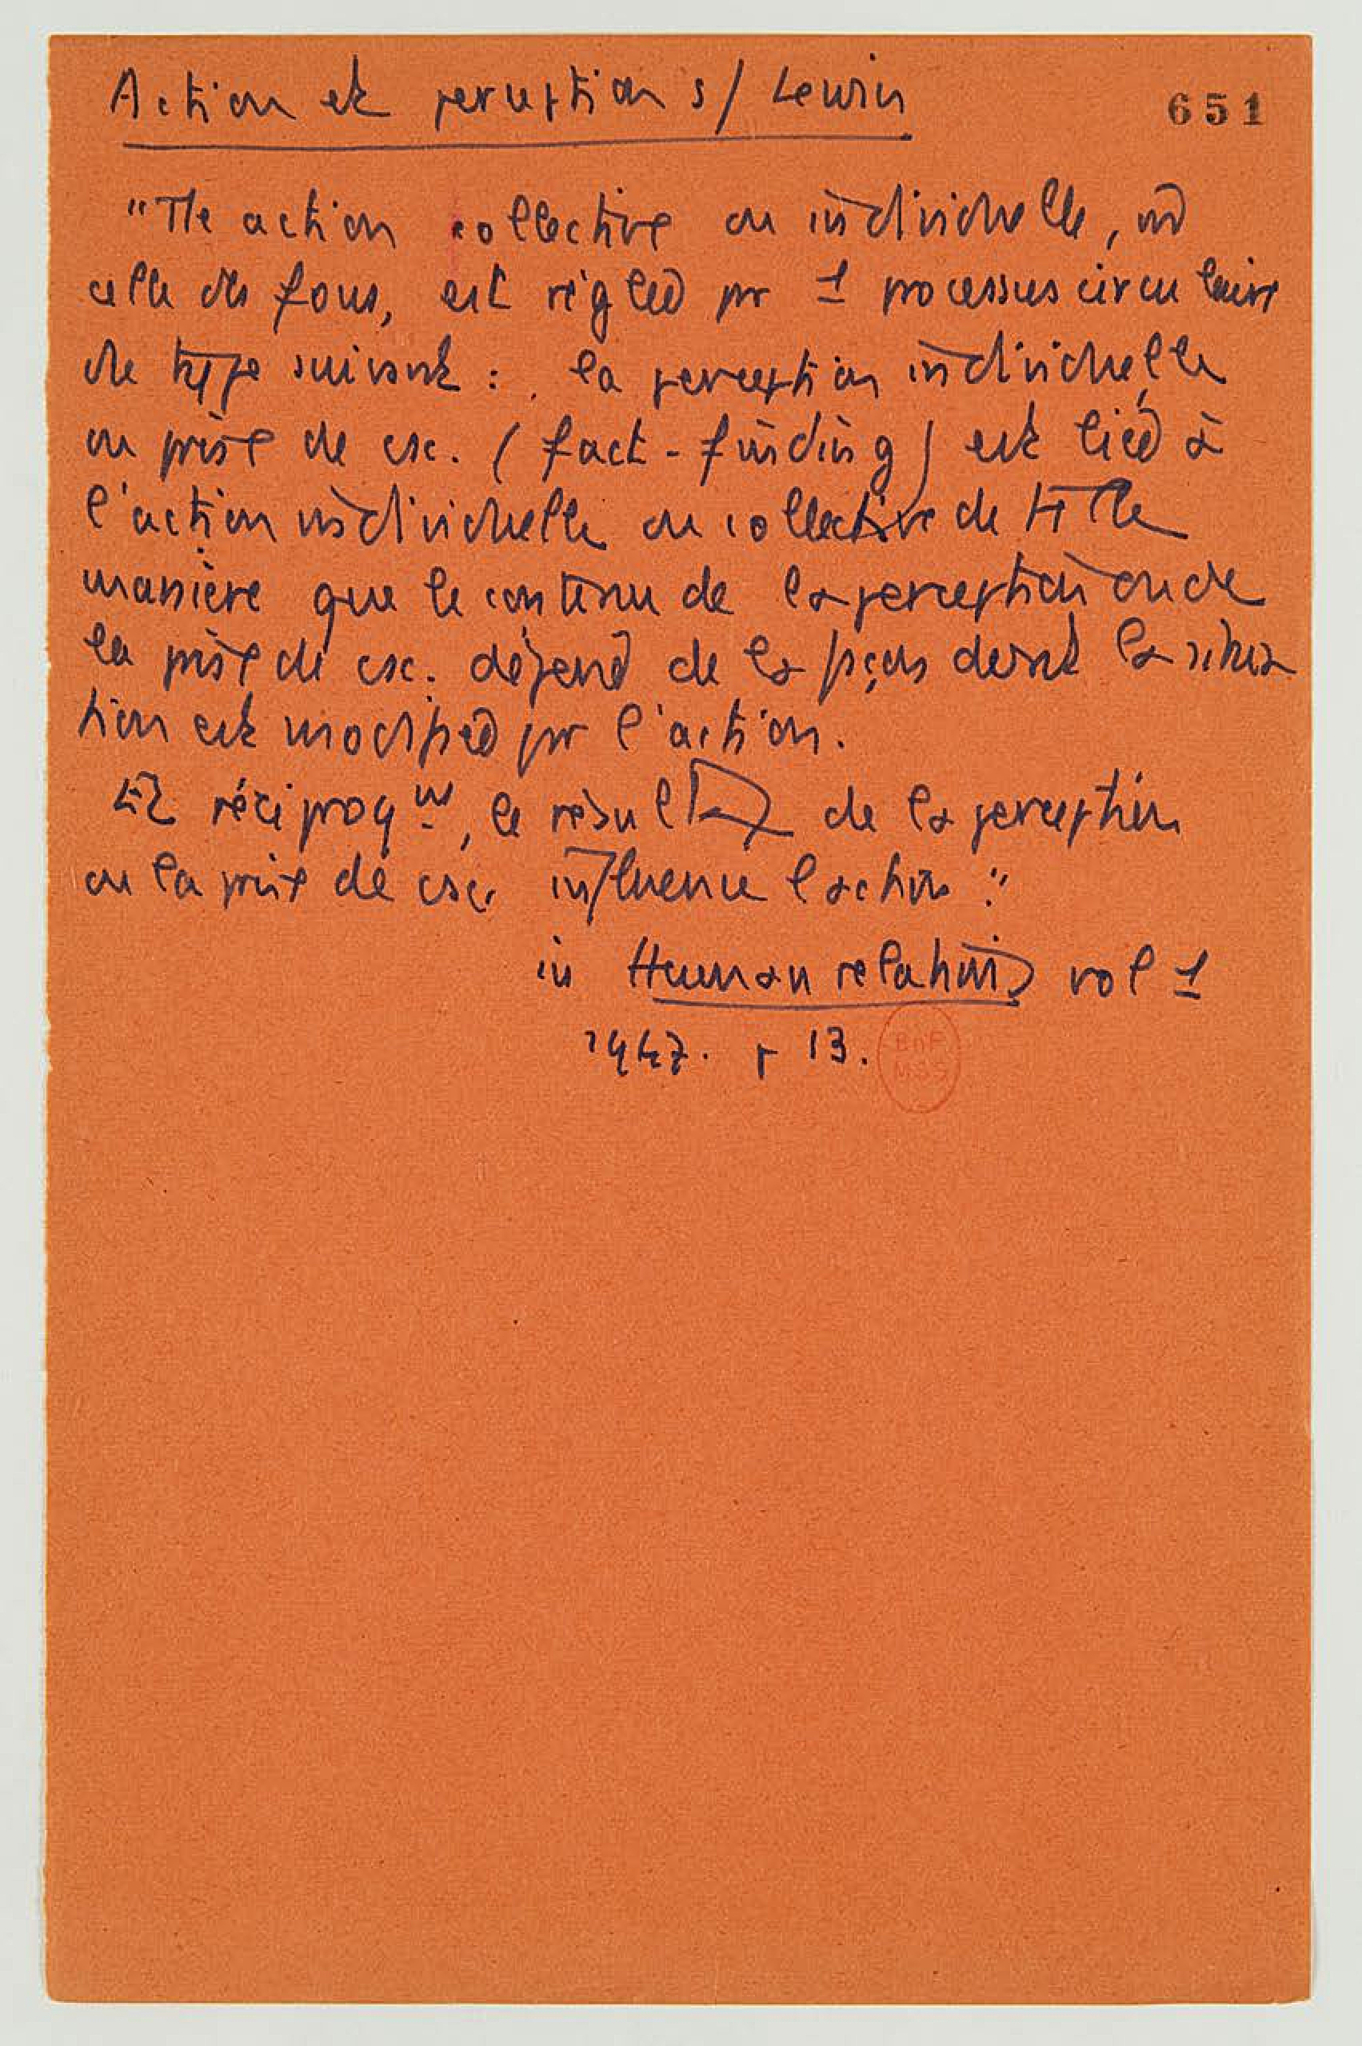 Action et perception s/ Lewin
651
"Tte action collective ou individuelle, m̂
celle des fous, est réglée pr 1 processus circulaire
de type suivant : la perception individuelle
ou prise de csc. (fact-finding) est liée à
l'action individuelle ou collective de telle
manière que le contenu de la perception ou de
la prise de csc. dépend de la façon dont la situa
tion est modifiée pr l'action.
Et réciproqt, le résultat de la perception
ou la prise de csc. influence l'action."
in Human relations vol 1
1947. p 13.
BnF
MSS